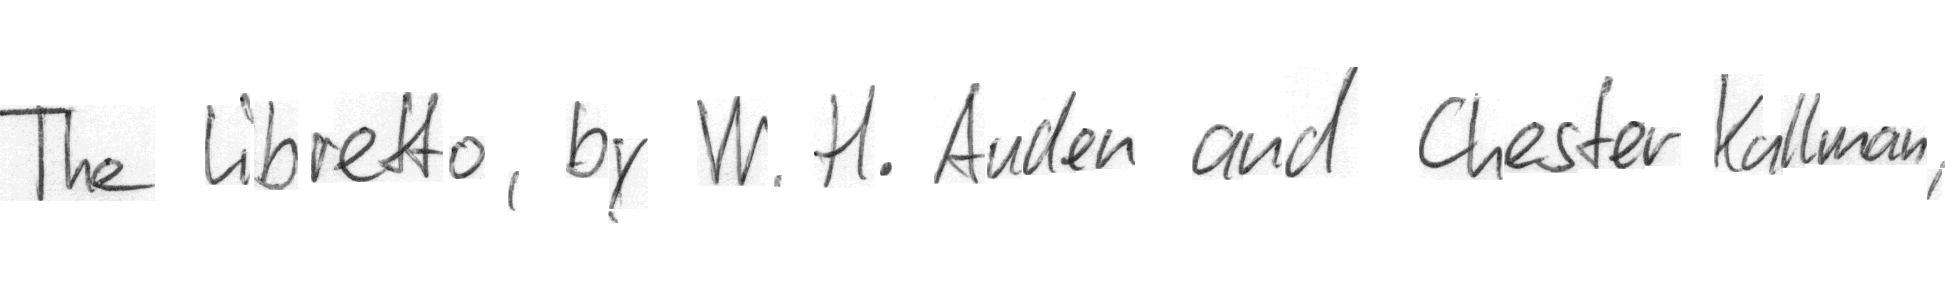 The libretto, by W. H. Auden and Chester Kallman,